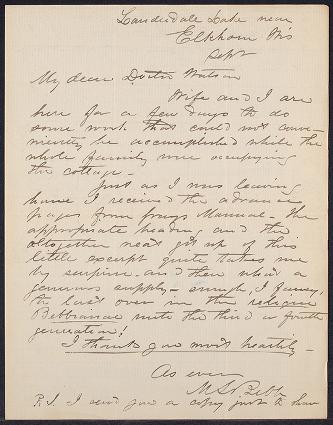 Lauderdale Lake near
Elkhorn Wis
Sept
My dear Doctor Watson
Wife and I are
here for a few days to do
some work that could not conve-
niently be accomplished while the
whole family were occupying
the cottage -
Just as I was leaving
home I received the advance
pages from Grays Manual - the
appropriate heading and the
altogether neat get up of this
little excerpt quite takes me
by surprise - and then what a
generous supply - enough, I fancy,
to last over in the
unto the third or fourth
generation!
I thank you most heartily -
As ever
M. S. Bebb
P.S. I send you a copy just to show